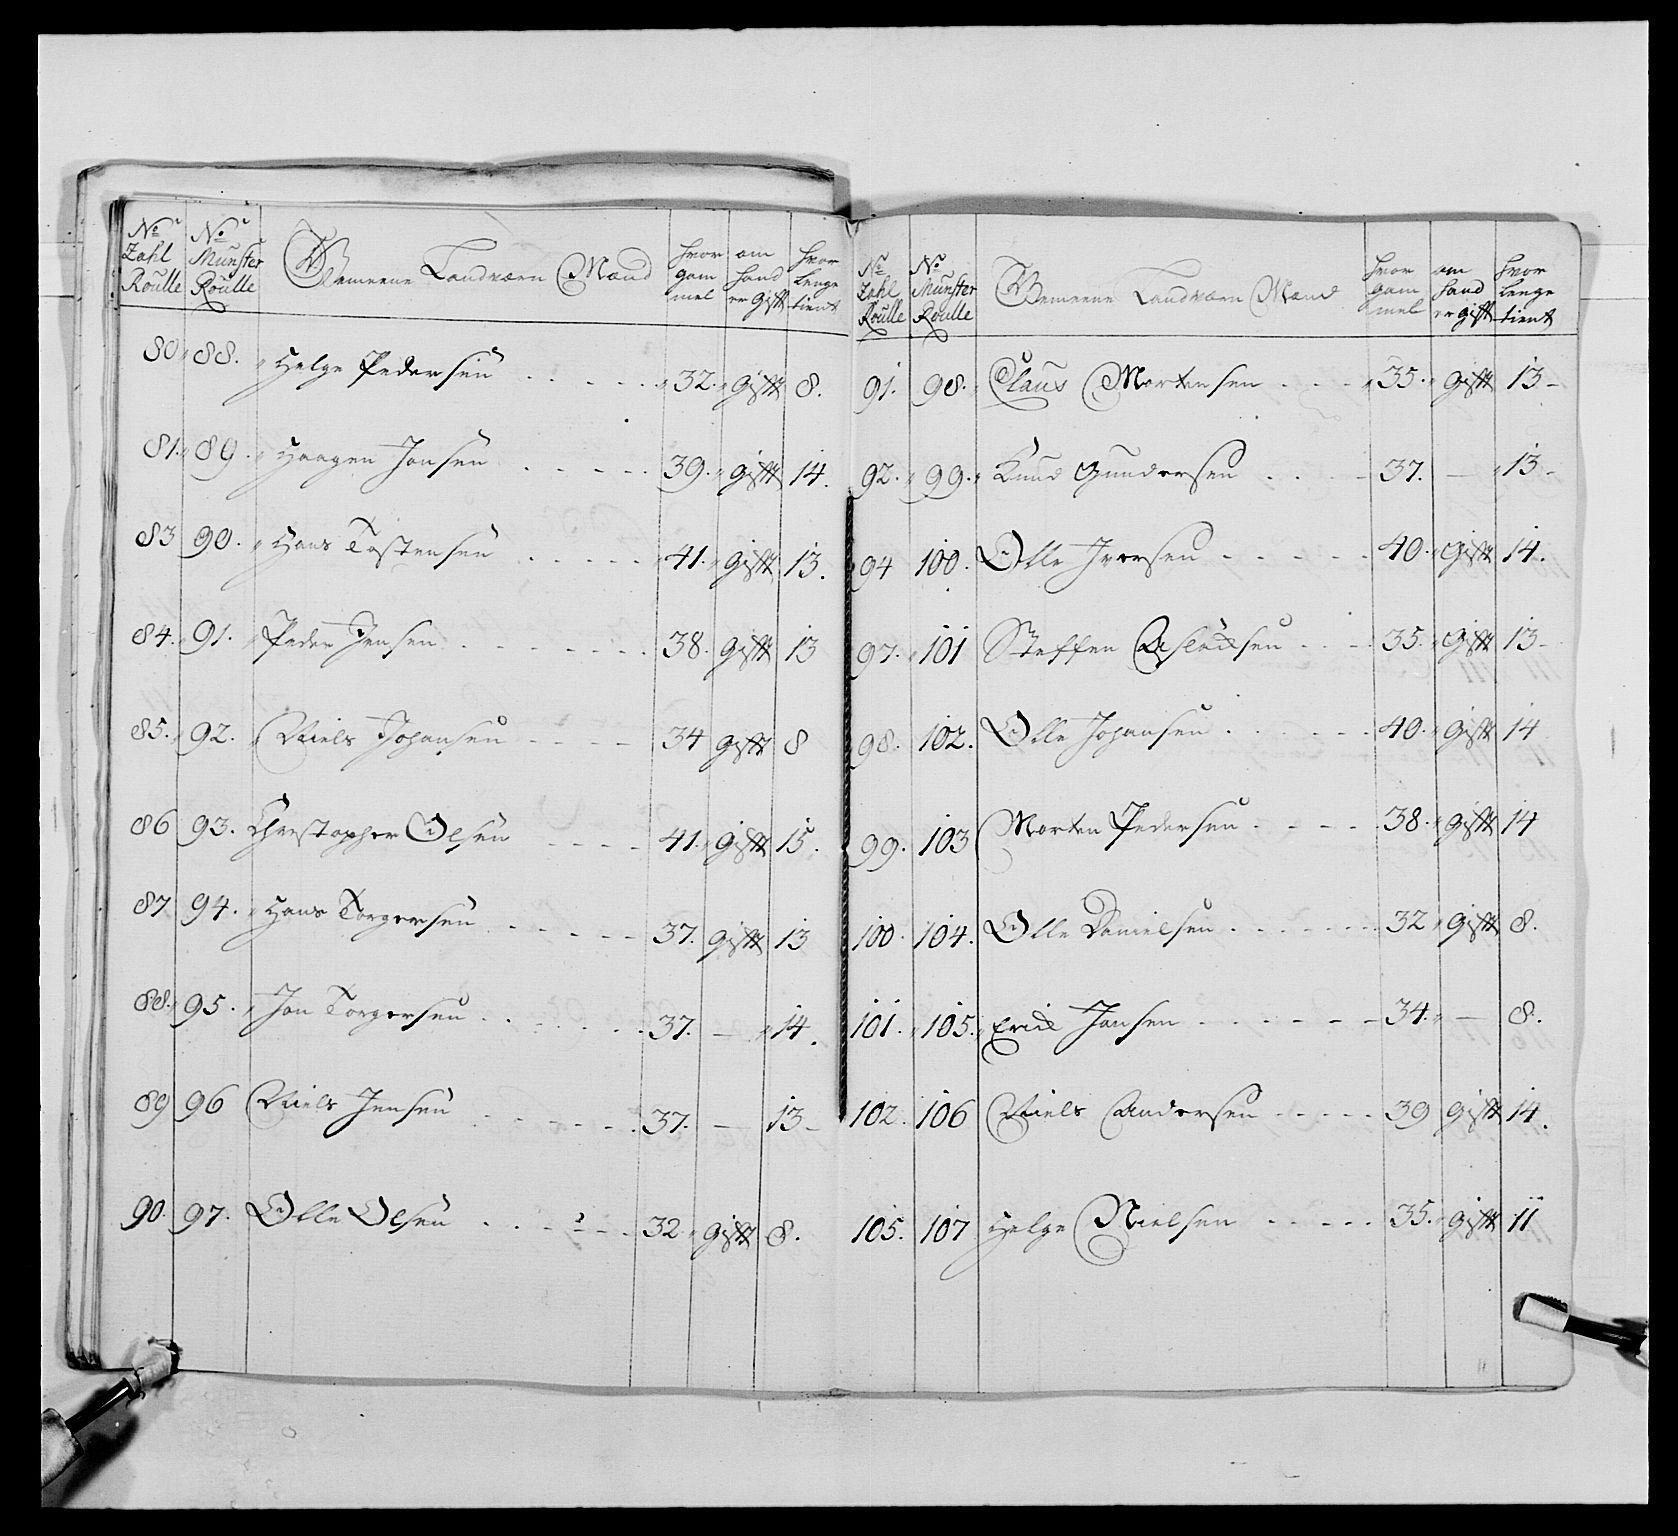 No Zahl Roulle No Munster Roulle Gemeene Landværn Mænd hvor gam mel om hand er gift hvor lenge tient
80. 88. Helge Pedersen 32. gift 8.
81. 89. Haagen Jonsen 39. gift 14.
83 90. Hans Tostensen 41. gift 13.
84. 91. Peder Jensen 38. gift 13
85. 92. Niels Johansen 34 gift 8
86 93. Christopher Olsen 41. gift 15.
87 94. Hans Torgersen 37. gift 13
88. 95. Jon Torgersen 37. — 14.
89 96 Niels Jensen 37. — 13-
90. 97. Olle Olsen 32. gift 8.
No Zahl Roulle No Munster Roulle Gemeene Landværn Mænd hvor gam mel om hand er gift hvor lenge tient
91. 98. Claus Mortensen 35. gift 13-
92. 99. Knud Gundersen 37. — 13-
94 100. Olle Iversen 40. gift 14.
97. 101 Steffen Aslacksen 35. gift 13-
98. 102. Olle Johansen 40. gift 14
99. 103 Morten Pedersen 38. gift 14
100. 104. Olle Danielsen 32 gift 8.
101. 105. Erick Jonsen 34. — 8.
102. 106 Niels Andersen 39 gift 14.
105. 107 Helge Nielsen 35. gift 11